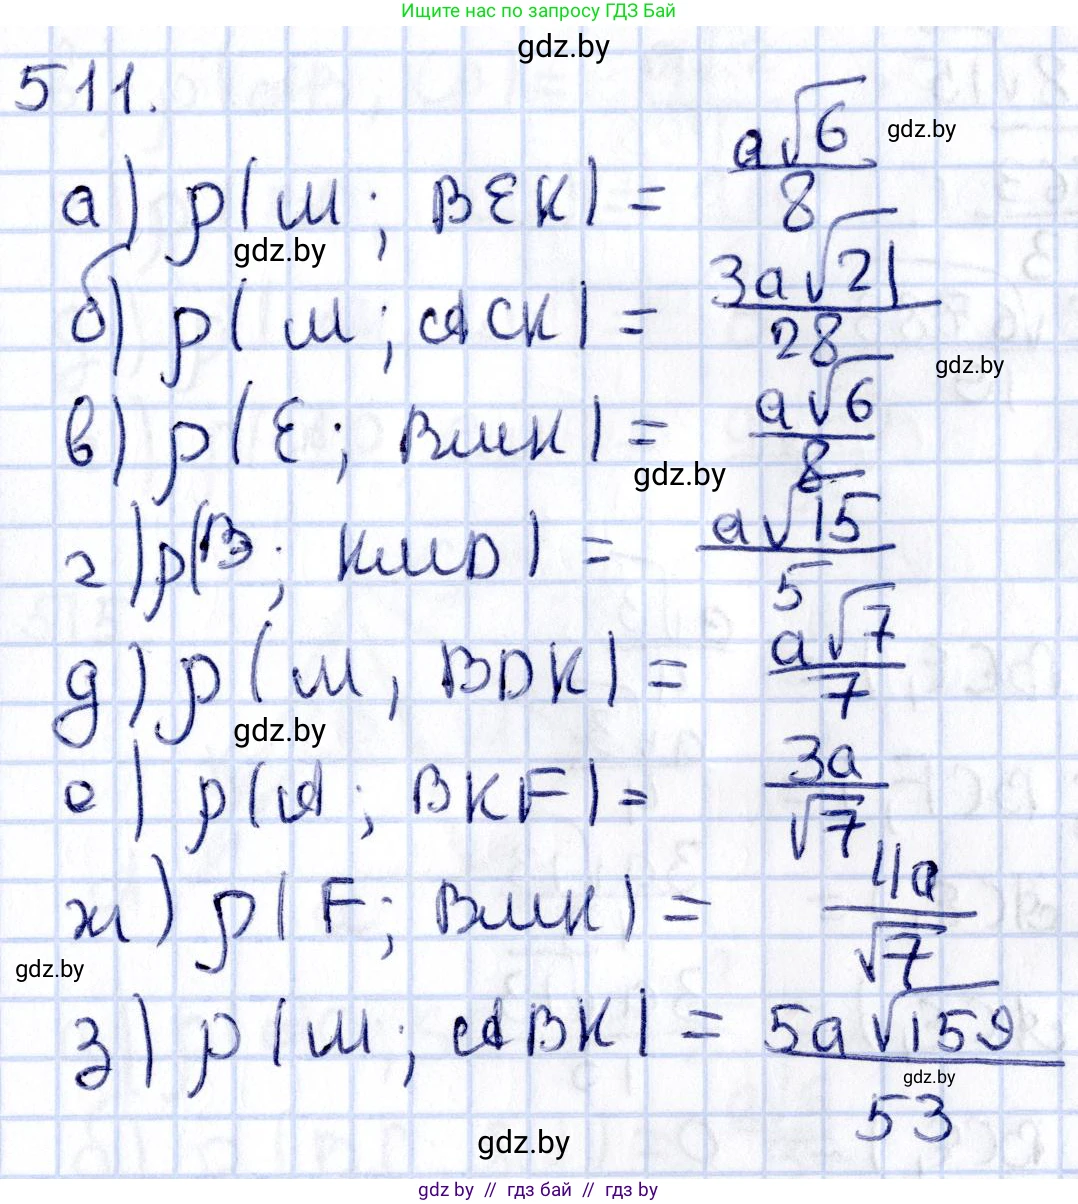 Ищите нас по запросу ГДЗ Бай
gdz.by
511.
gdz.by
а) ρ(M; BEK) = a√6/8
gdz.by
б) ρ(M; ACK) = 3a√21/28
gdz.by
в) ρ(E; BMK) = a√6/8
gdz.by
г) ρ(B; KMD) = a√15/5
д) ρ(M, BDK) = a√7/7
gdz.by
е) ρ(A; BKF) = 3a/√7
ж) ρ(F; BMK) = 4a/√7
gdz.by
з) ρ(M; ABK) = 5a√159/53
gdz.by
gdz.by
gdz.by // гдз бай // гдз by